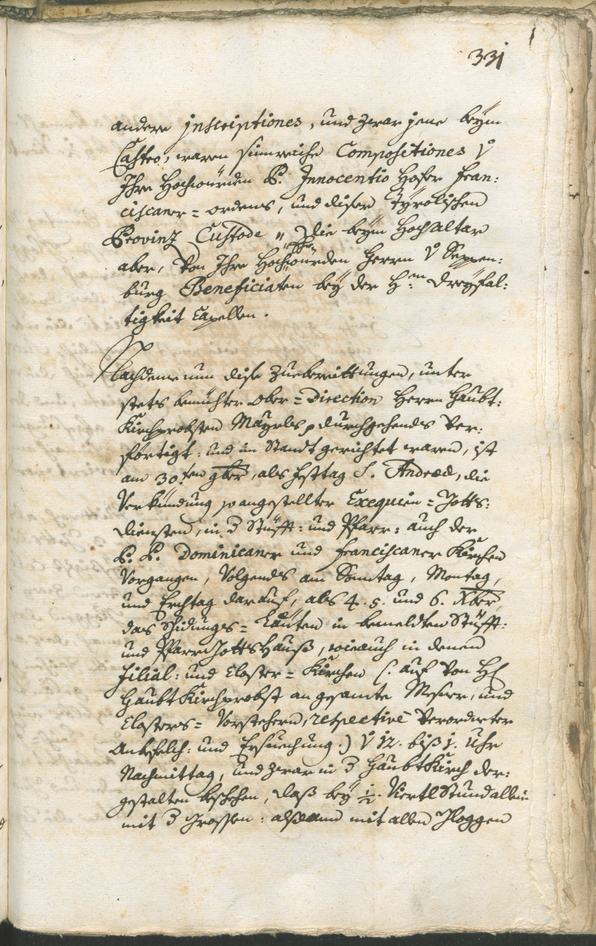 331
andere jnscriptiones, und zwar jene beÿm
Castro, waren sinnreiche Compositiones V
Ihro Hochwürden P. Innocentio Hofer Fran:
ciscaner=ordens, und diser Tÿrolischen
Provinz Custode „ die beÿm Hochaltar
aber, von Ihro Hochwürden Herrn V
burg Beneficiaten beÿ der H: Dreÿfal:
tigkeit Capellen.
Nachdeme nun dise Zuebereittungen, unter
stets bemühter Ober=Direction Herrn Haubt:
Kirchprobsten Maÿrls durchgehends ver:
förtigt: und in Standt gerichtet waren, ist
am 30ten 9ber, als Festtag S. Andreæ, die
Verkündung angestellter Exequien=Gotts:
diensten, in d Stüfft: und Pfarr: auch der
P. P. Dominicaner und Franciscaner Kirchen
Vorgangen, Volgends am Sonntag, Montag,
und Erchtag darauf, als 4. 5. und 6. Xber,
das Schidungs=Läuten in bemeldten Stüfft:
und Pfarr Gotts Hauß, wie auch in denen
Filial: und Closter=Kirchen (: auf von H
Haubt Kirchprobst an gesamte Messner, und
Closters=Vorstehern, respective Verordneter
Anbefelch: und Ersuechung:) V 12. biß 1. Uhr
Nachmittag, und zwar in d Haubtkirch der:
gestalten beschehen, daß beÿ ½ Viertl Stund allein
mit d Grossen: alßdann mit allen Gloggen